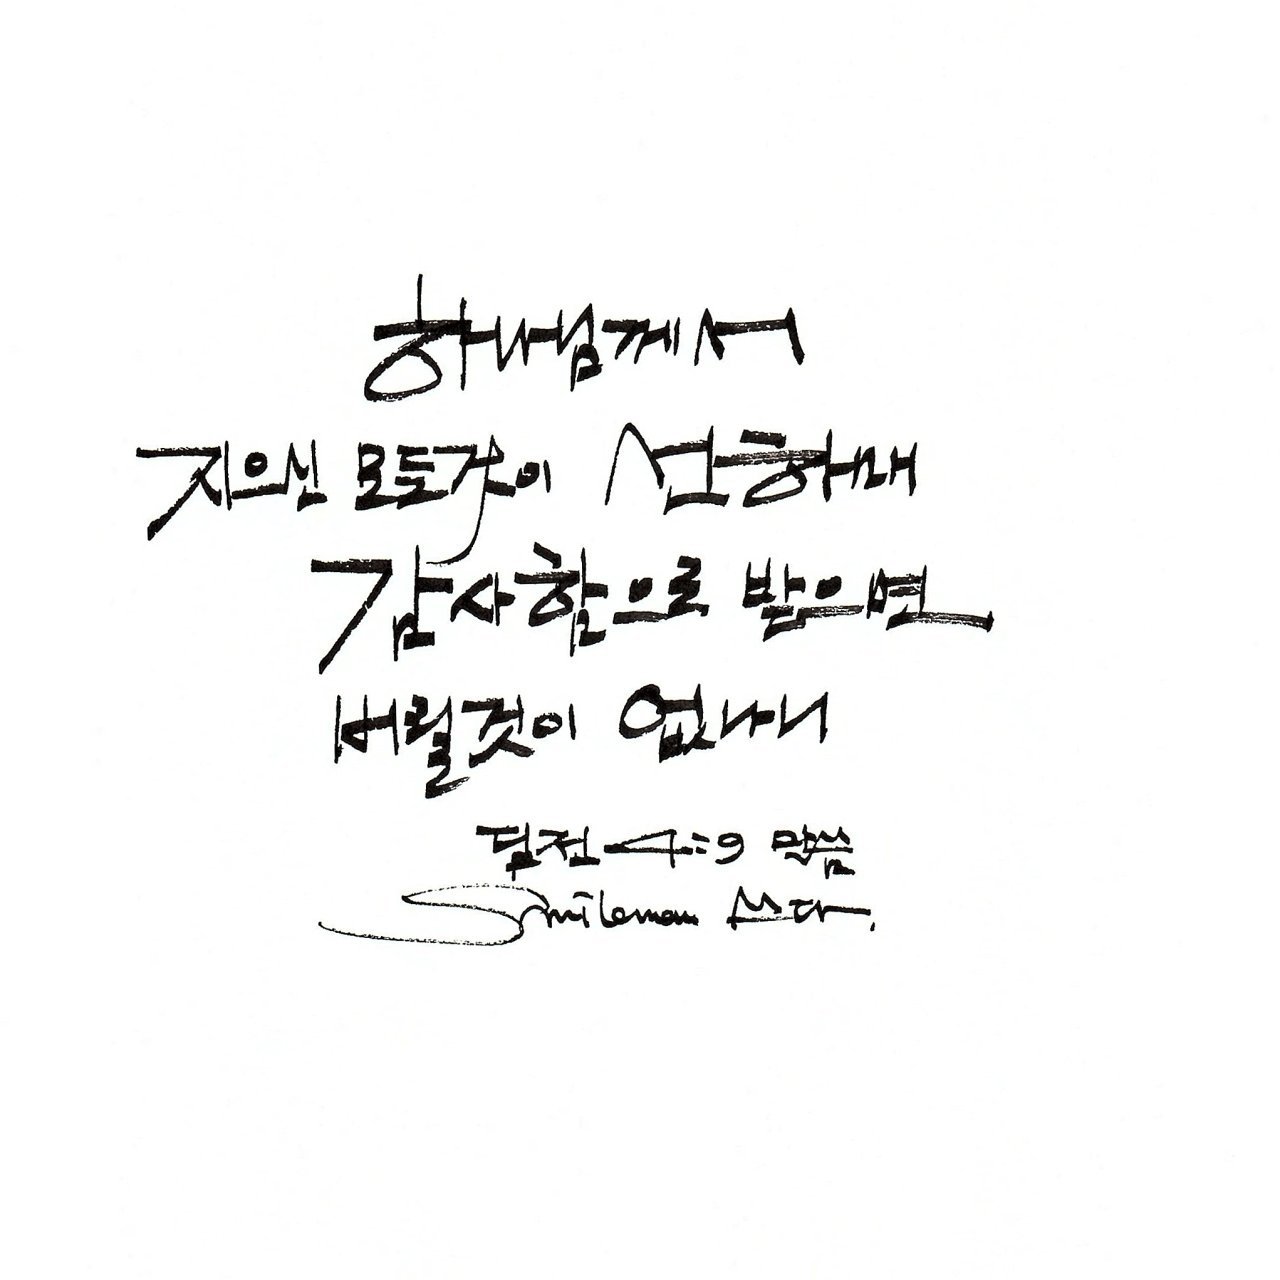 하나님께서
지으신 모든것이 선하매
감사함으로 받으면
버릴것이 없나니
딤전 4:9 말씀
Smileman 쓰다.